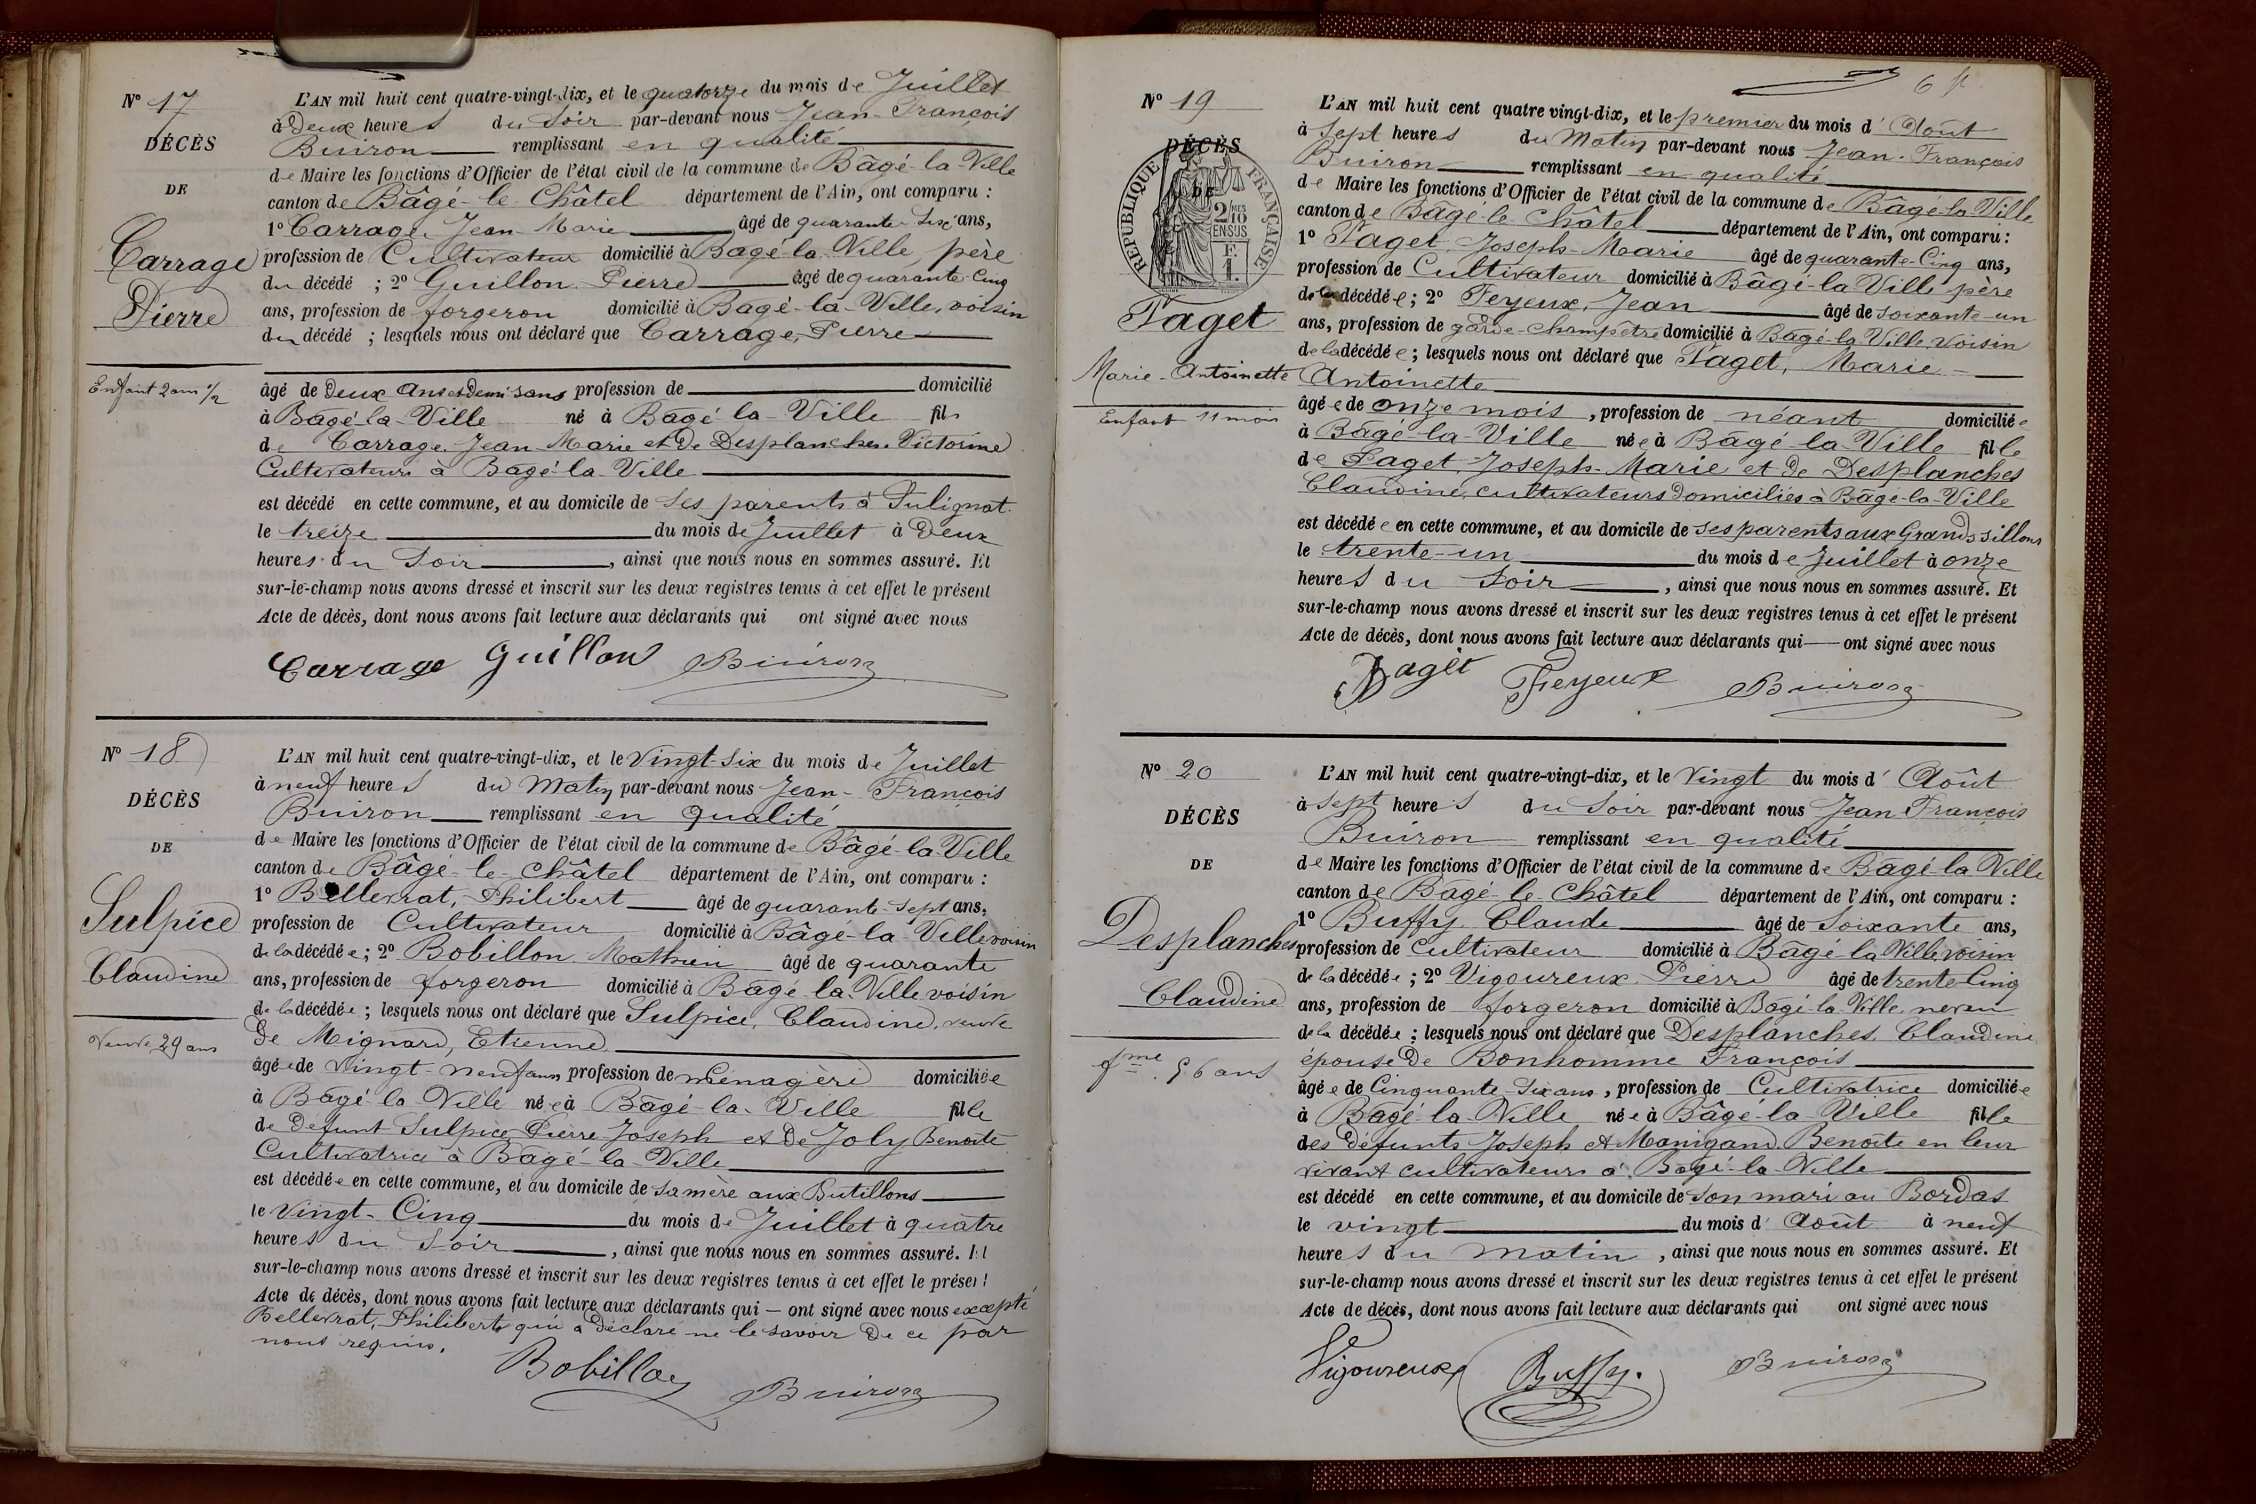 N° 17
DÉCÈS
DE
Carrage
Pierre
Enfant 2 ans 1/2
L'AN mil huit cent quatre-vingt-dix, et le quatorze du mois de Juillet
à Deux heures du Soir par-devant nous Jean-François
Buiron remplissant en qualité
de Maire les fonctions d'Officier de l'état civil de la commune de Bâgé-la-Ville
canton de Bâgé-le-Châtel département de l'Ain, ont comparu :
1° Carrage, Jean-Marie âgé de quarante-six ans,
profession de Cultivateur domicilié à Bâgé-la-Ville, père
du décédé ; 2° Guillon Pierre âgé de quarante-Cinq
ans, profession de forgeron domicilié à Bagé-la-Ville, voisin
du décédé ; lesquels nous ont déclaré que Carrage, Pierre
âgé de Deux ans et Demi sans profession de domicilié
à Bagé-la-Ville né à Bagé la-Ville fils
de Carrage, Jean-Marie et de Desplanches Victorine
Cultivateurs à Bagé-la-Ville
est décédé en cette commune, et au domicile de ses parents à Tulignat
le treize du mois de Juillet à Deux
heures du Soir, ainsi que nous nous en sommes assuré. Et
sur-le-champ nous avons dressé et inscrit sur les deux registres tenus à cet effet le présent
Acte de décès, dont nous avons fait lecture aux déclarants qui ont signé avec nous
Carrage Guillon Buiron
N° 18
DÉCÈS
DE
Sulpice
Claudine
Veuve 29 ans
L'AN mil huit cent quatre-vingt-dix, et le vingt-six du mois de Juillet
à neuf heures du Matin par-devant nous Jean-François
Buiron remplissant en qualité
de Maire les fonctions d'Officier de l'état civil de la commune de Bâgé-la-Ville
canton de Bâgé-le-Châtel département de l'Ain, ont comparu :
1° Bellevrat, Philibert âgé de quarante-sept ans,
profession de Cultivateur domicilié à Bâgé-la-Ville voisin
de la décédée ; 2° Bobillon Mathieu âgé de quarante
ans, profession de forgeron domicilié à Bagé-la-Ville voisin
de la décédée ; lesquels nous ont déclaré que Sulpice, Claudine, veuve
De Mignard, Etienne
âgée de vingt-neuf ans profession de ménagère domiciliée
à Bagé-la-Ville née à Bagé-la-Ville fille
de Défunt Sulpice Pierre Joseph et De Joly Benoîte
Cultivatrice à Bagé-la-Ville
est décédée en cette commune, et au domicile de sa mère aux Butillons
le vingt-Cinq du mois de Juillet à quatre
heures du Soir, ainsi que nous nous en sommes assuré. Et
sur-le-champ nous avons dressé et inscrit sur les deux registres tenus à cet effet le présent
Acte de décès, dont nous avons fait lecture aux déclarants qui — ont signé avec nous excepté
Bellevrat, Philibert qui a Déclaré ne le savoir De ce par
nous requis.
Bobillon Buiron
N° 19
DÉCÈS
DE
RÉPUBLIQUE FRANÇAISE
2/10 MES
EN SUS
F.
1.
Paget
Marie-Antoinette
Enfant 11 mois
L'AN mil huit cent quatre vingt-dix, et le premier du mois d' Août
à Sept heures du Matin par-devant nous Jean-François
Buiron remplissant en qualité
de Maire les fonctions d'Officier de l'état civil de la commune de Bâgé-la-Ville
canton de Bâgé-le-Châtel département de l'Ain, ont comparu :
1° Paget, Joseph-Marie âgé de quarante-Cinq ans,
profession de Cultivateur domicilié à Bâgé-la-Ville père
de la décédée ; 2° Feyeux, Jean âgé de soixante-un
ans, profession de garde-champêtre domicilié à Bagé-la-Ville voisin
de la décédée ; lesquels nous ont déclaré que Paget, Marie
Antoinette
âgée de onze mois, profession de néant domiciliée
à Bagé-la-Ville née à Bagé la-Ville fille
de Paget, Joseph-Marie et De Desplanches
Claudine, cultivateurs Domiciliés à Bâgé-la-Ville
est décédée en cette commune, et au domicile de ses parents aux Grands sillons
le trente-un du mois de Juillet à onze
heures du Soir, ainsi que nous nous en sommes assuré. Et
sur-le-champ nous avons dressé et inscrit sur les deux registres tenus à cet effet le présent
Acte de décès, dont nous avons fait lecture aux déclarants qui — ont signé avec nous
Paget Feyeux Buiron
N° 20
DÉCÈS
DE
Desplanches
Claudine
fme 56 ans
L'AN mil huit cent quatre-vingt-dix, et le vingt du mois d' Août
à Sept heures du Soir par-devant nous Jean François
Buiron remplissant en qualité
de Maire les fonctions d'Officier de l'état civil de la commune de Bagé-la-Ville
canton de Bagé-le-Châtel département de l'Ain, ont comparu :
1° Buffy Claude âgé de soixante ans,
profession de Cultivateur domicilié à Bâgé-la-Ville voisin
de la décédée ; 2° Vigoureux Pierre âgé de trente-Cinq
ans, profession de forgeron domicilié à Bagé-la-Ville neveu
de la décédée ; lesquels nous ont déclaré que Desplanches Claudine
épouse De Bonhomme François
âgée de Cinquante-Six ans, profession de Cultivatrice domiciliée
à Bagé-la-Ville née à Bâgé-la-Ville fille
des Défunts Joseph et Manigand Benoîte en leur
vivant cultivateurs à Bagé-la-Ville
est décédé en cette commune, et au domicile de son mari au Bordas
le vingt du mois d' Août à neuf
heures du matin, ainsi que nous nous en sommes assuré. Et
sur-le-champ nous avons dressé et inscrit sur les deux registres tenus à cet effet le présent
Acte de décès, dont nous avons fait lecture aux déclarants qui ont signé avec nous
Vigoureux Buffy. Buiron